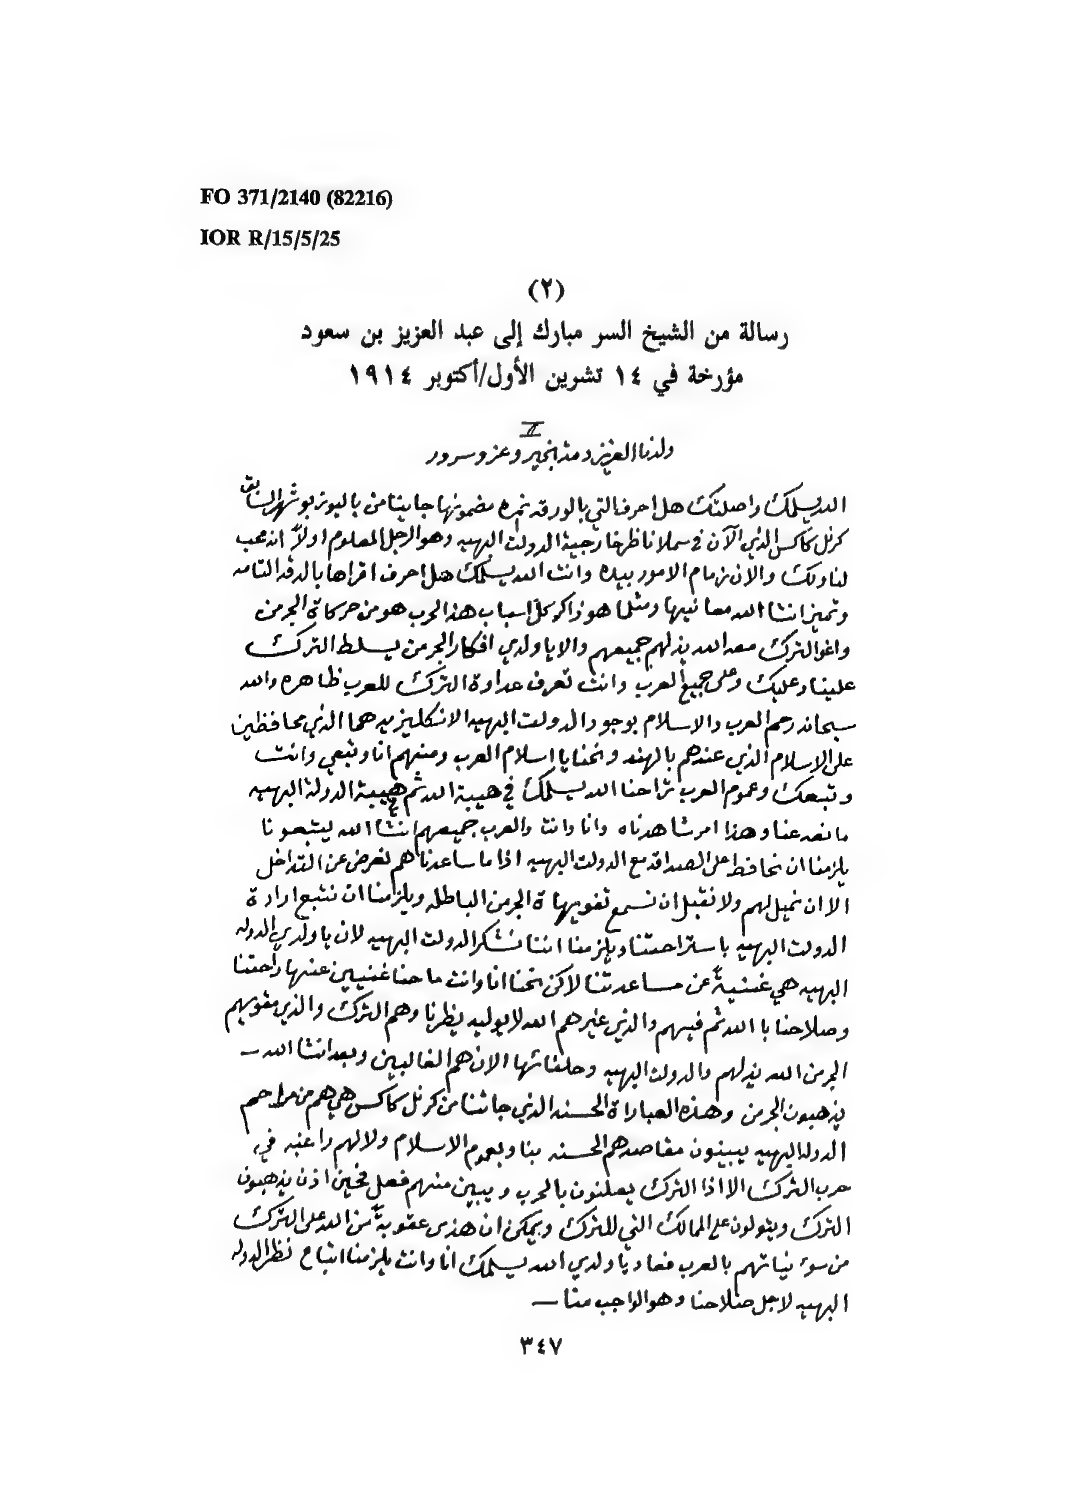 FO 371/2140 (82216)
IOR R/15/5/25
(٢)
رسالة من الشيخ السر مبارك إلى عبد العزيز بن سعود
مؤرخة في ١٤ تشرين الأول/أكتوبر ١٩١٤
II
ولدنا العزيز دمت بخير وعز وسرور
الله يسلمك واصلتك هل احرف التي بالورقه نمره مضمونها جايبنا من باليوز بوشهر السابق
كرنل كاكس الذي الآن في سملا ناظر خارجية الدولت البهيه وهو الرجل المعلوم اولاً انه محب
لنا ولك والان زمام الامور بيده وانت الله يسلمك هل احرف اقراها بالدقه التامه
وتميز انشا الله معانيها ومثلما هو ذاكر كل اسباب هذا الحرب هو من حركاة الجرمن
واغوا الترك معه الله يذلهم جميعهم والا يا ولدي افكار الجرمن يسلط الترك
علينا وعليك وعلى جميع العرب وانت تعرف عداوة الترك للعرب ظاهره والله
سبحانه رحم العرب والاسلام بوجود الدولت البهيه الانكليزيه هما الذي محافظين
على الاسلام الذي عندهم بالهند ونحنايا اسلام العرب ومنهم انا وتبعي وانت
وتبعك وعموم العرب ترا حنا الله يسلمك في هيبة الله ثم في هيبة الدولة البهيه
ما نعد عنا وهذا امر شاهدناه وانا وانت والعرب جميعهم انشا الله يتبعونا
يلزمنا ان نحافظ على الصداقه مع الدولت البهيه اذا ما ساعدناهم نعرض عن التداخل
الا ان نميل لهم ولا نقبل ان نسمع تفويهاة الجرمن الباطله ويلزمنا ان نتبع ارادة
الدولت البهيه باستراحتنا ويلزمنا اننا نشكر الدولت البهيه لان يا ولدي الدوله
البهيه هي غنيةً عن مساعدتنا لاكن نحنا انا وانت ما حنا غنيين عنها راحتنا
وصلاحنا با الله ثم فيهم والذي غيرهم الله لا يوليه يضرنا وهم الترك والذي مقويهم
الجرمن الله يذلهم والدولت البهيه وحلفائها الان هم الغالبين وبعد انشا الله —
يذهبون الجرمن وهذه العباراة الحسنه الذي جائتنا من كرنل كاكس هي هم من مراحم
الدوله البهيه يبينون مقاصدهم الحسنه بنا وبعموم الاسلام ولا لهم راغبه في
حرب الترك الا اذا الترك يعلنون بالحرب ويبين منهم فعل فحين اذن يذهبون
الترك ويتولون على الممالك التي للترك ويمكن ان هذي عقوبةً من الله على الترك
من سوء نياتهم بالعرب فعاد يا ولدي الله يسلمك انا وانت يلزمنا اتباع نظر الدوله
البهيه لاجل صلاحنا وهو الواجب منا —
٣٤٧